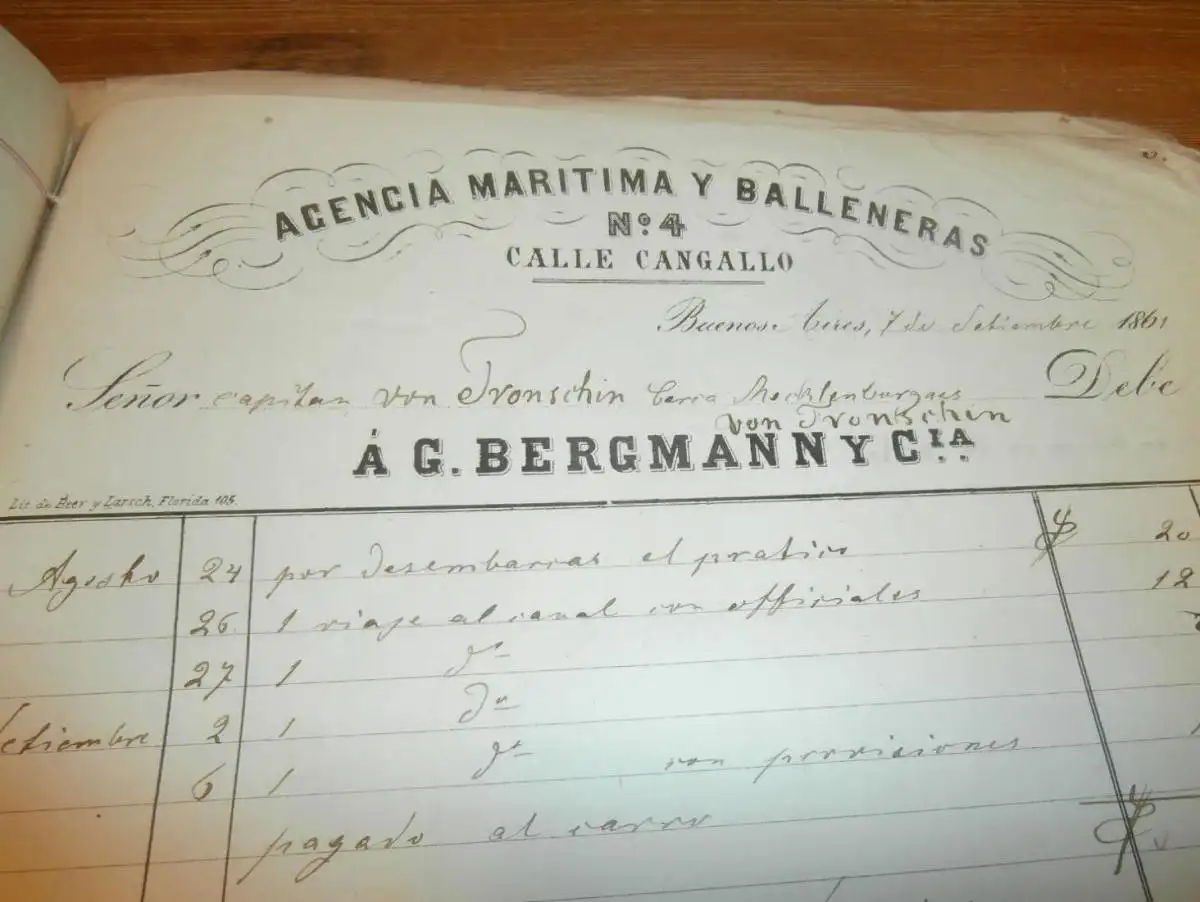 AGENCIA MARITIMA Y BALLENERAS
Nº. 4
CALLE CANGALLO
Buenos Aires, 7 de Setiembre 1861
Señor capitan von Tronschin barca Mecklenburgues Debe
von Tronschin
Á G. BERGMANN Y CIA.
Lit. de Beer y Larsch, Florida 105.
Agosto 24 por desembarcar el pratico $ 20
26 1 viaje al canal con officiales 12
27 1 do
Setiembre 2 1 do
6 1 do con provisiones
pagado al carro $